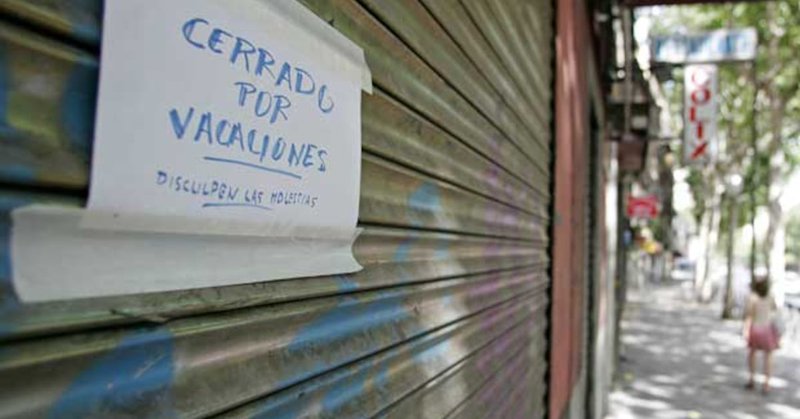 CERRADO
POR
VACACIONES
DISCULPEN LAS MOLESTIAS